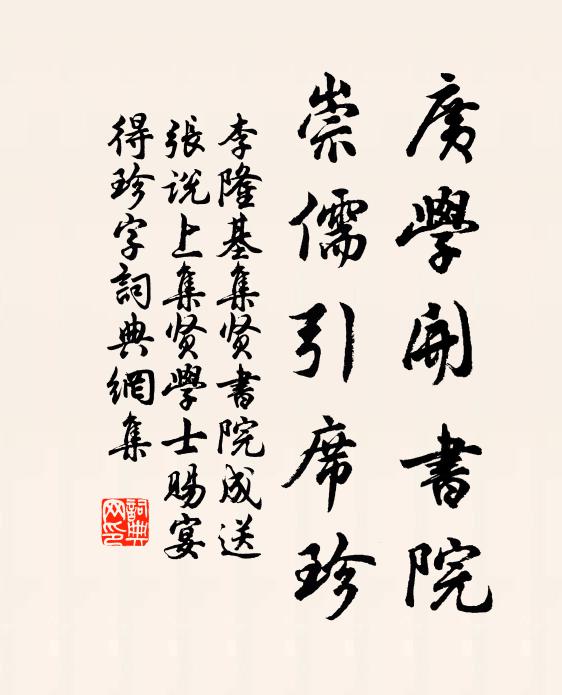 廣學開書院
崇儒引席珍
李隆基集贤書院成送
張说上集贤學士賜宴
得珍字詞典網集
詞典
网印